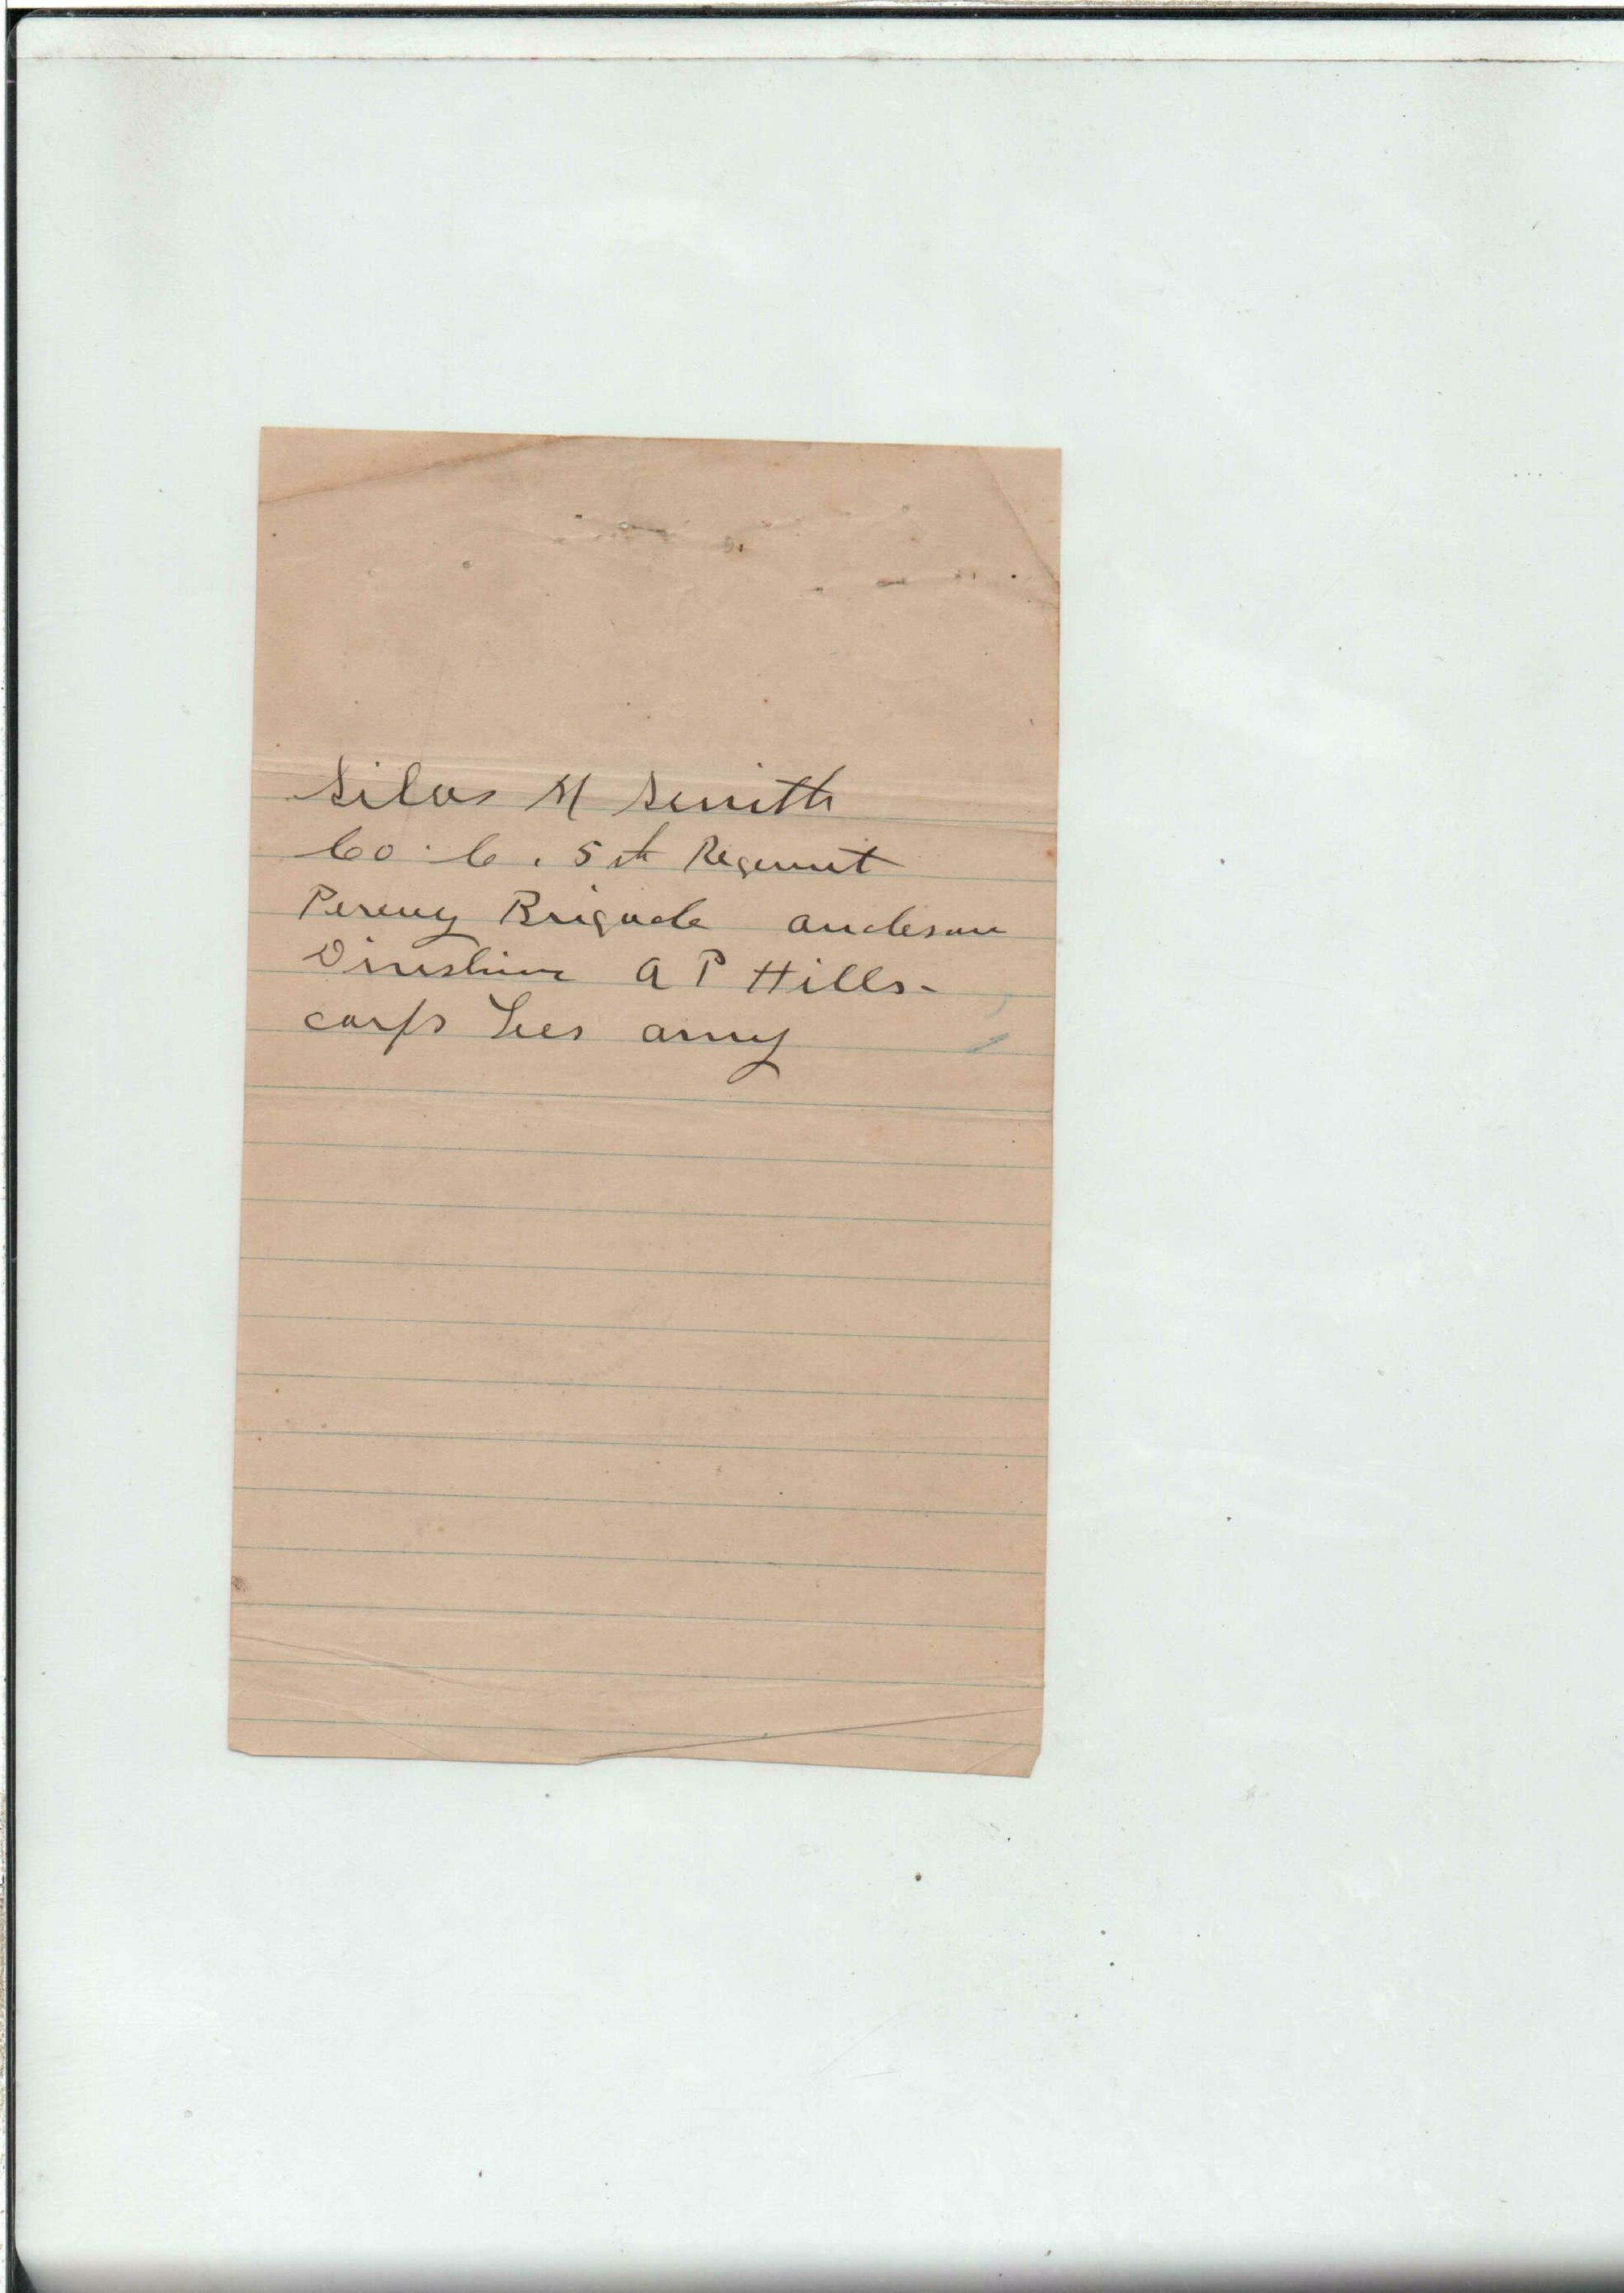 Silas M Smith
Co. C. 5th Regemnt
Pereny Brigade anderson
Divishion A P Hills-
corps Lees army